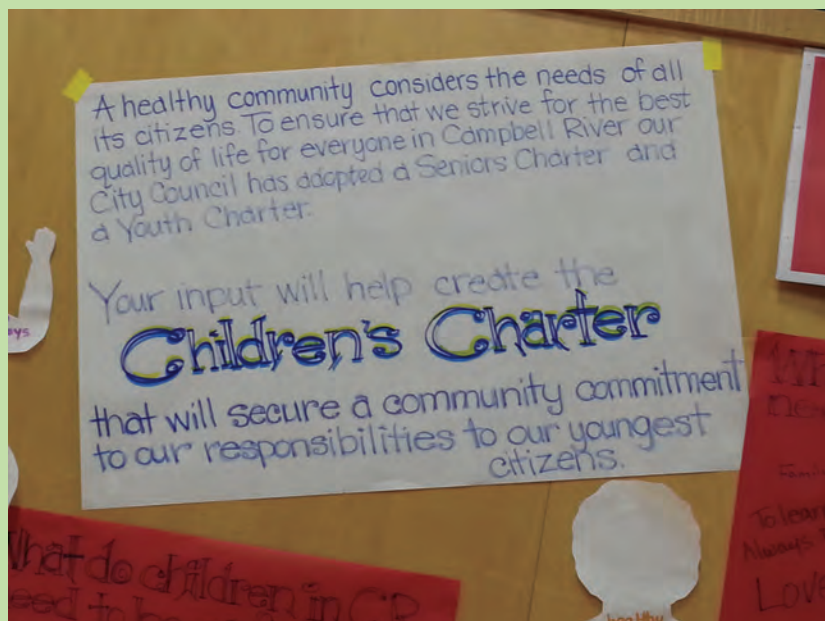 A healthy community considers the needs of all
its citizens. To ensure that we strive for the best
quality of life for everyone in Campbell River our
City Council has adopted a Seniors Charter and
a Youth Charter.
Your input will help create the
Children's Charter
that will secure a community commitment
to our responsibilities to our youngest
citizens.
What do children in CR
need to
To lear
Always
Love
healthy